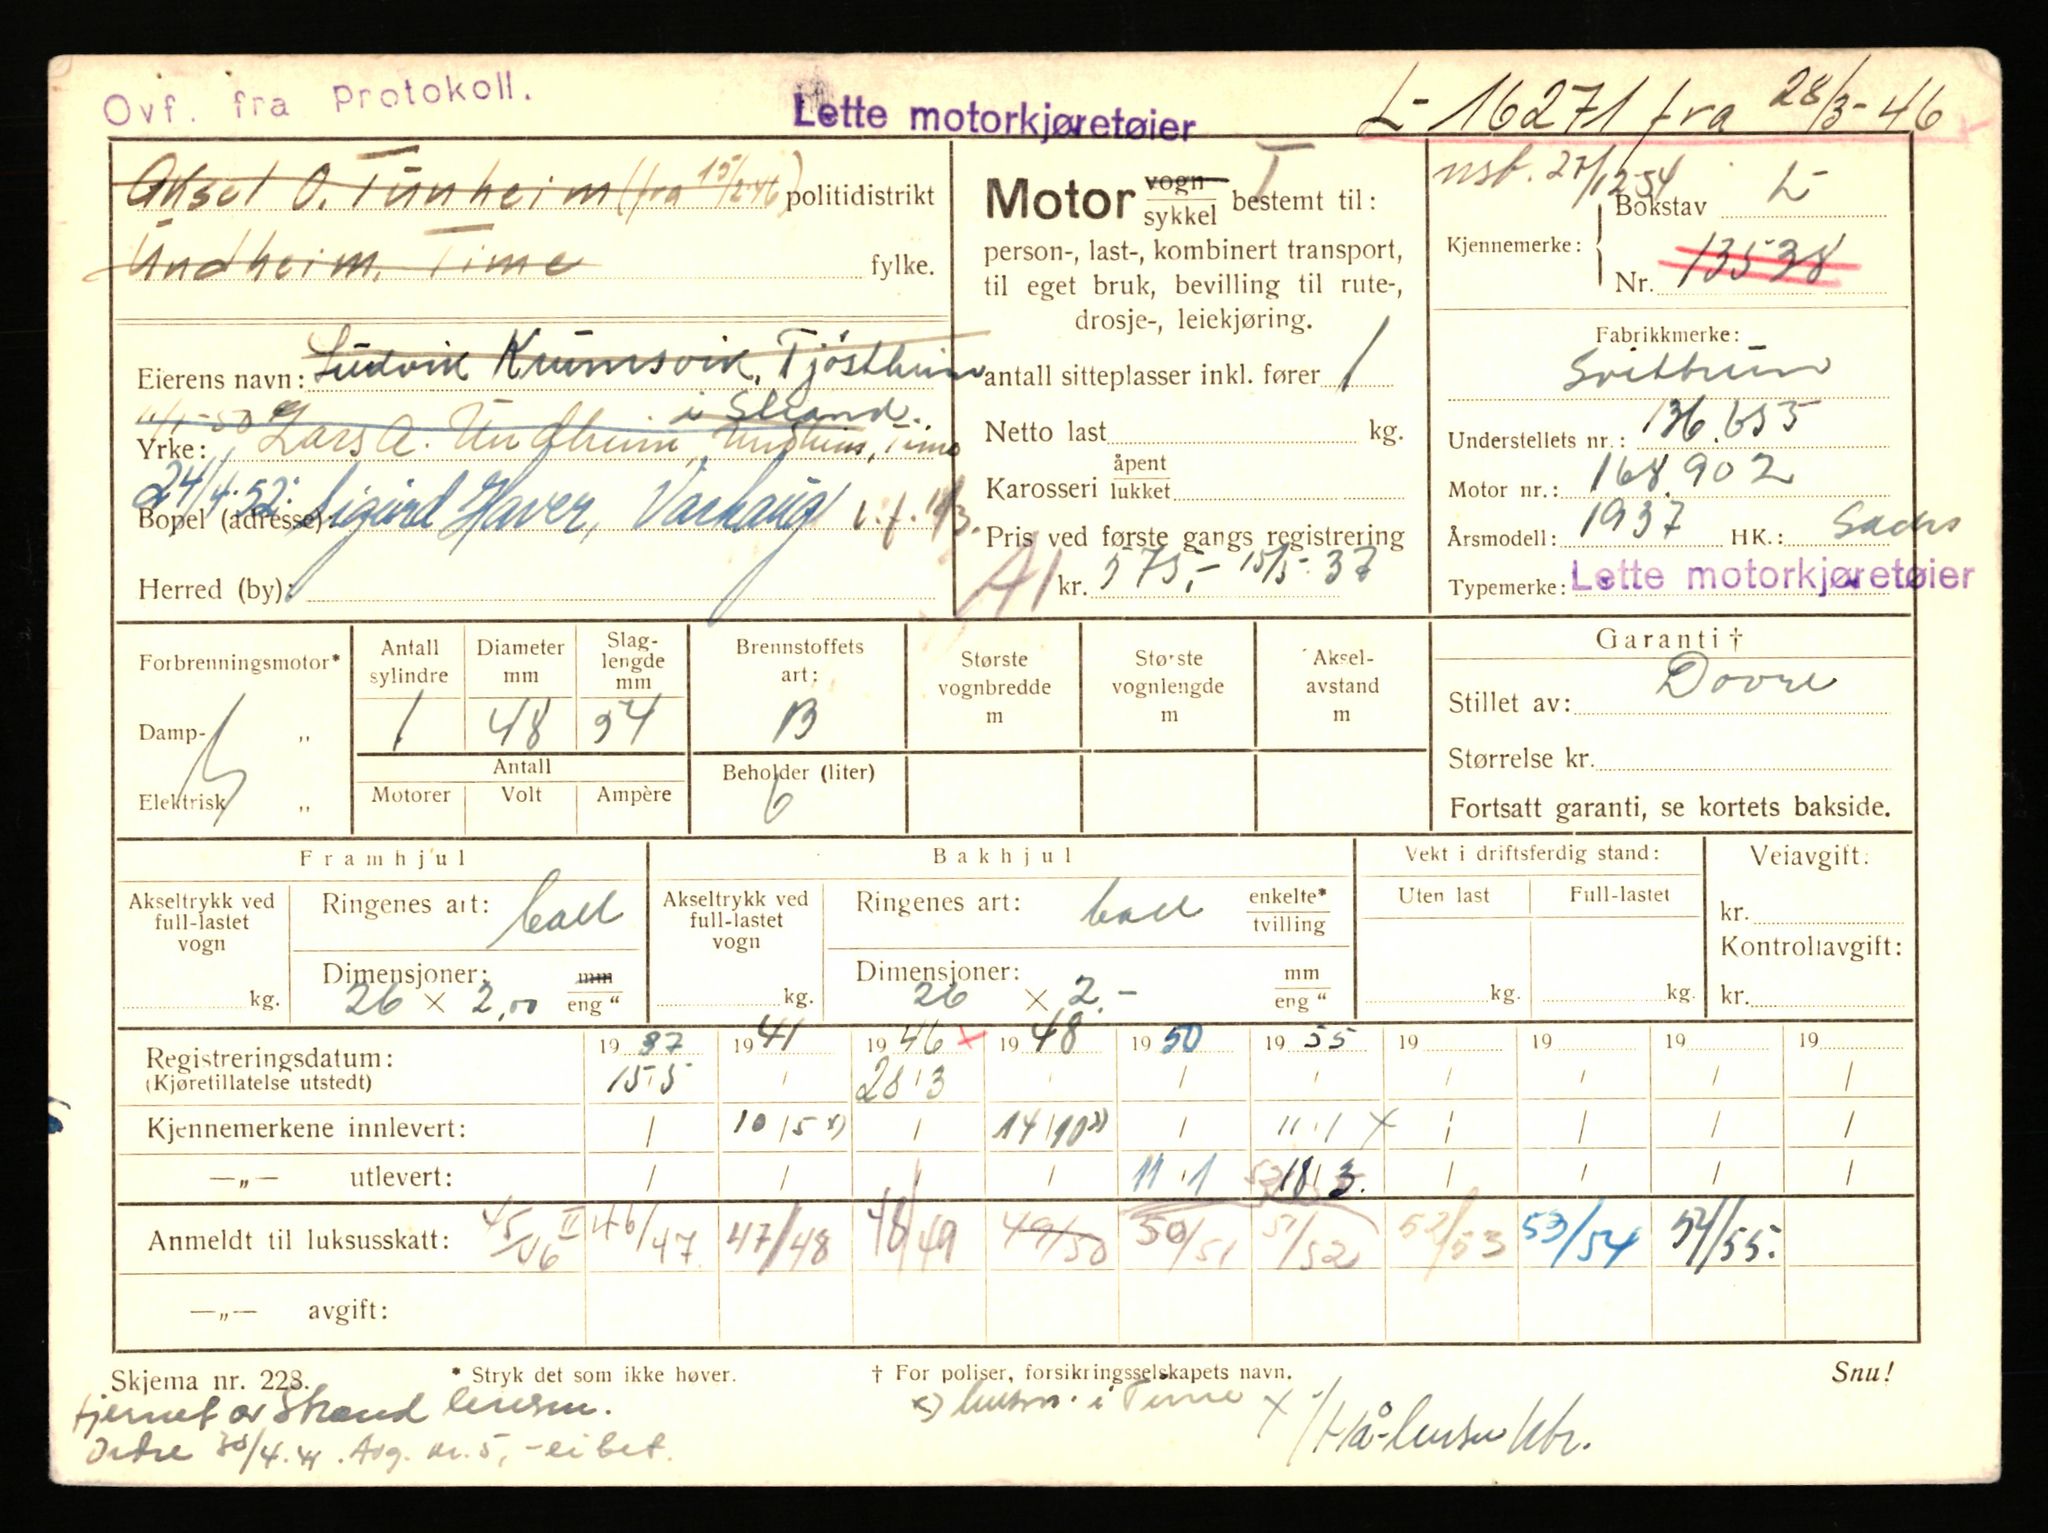 Ovf. fra Protokoll.
Lette motorkjøretøier
L- 16271 fra 28/3-46
Aksel O. Tunheim (fra 15/2-46) politidistrikt
Undheim, Time fylke.
Eierens navn: Ludvik Krumsvik, Tjøstheim
i Strand.
11/1-50 Lars A. Undheim, Undheim, Time
Yrke:
24/4-52: Sigurd Haver, Varhaug
Bopel (adresse):
Herred (by):
Motor vogn sykkel bestemt til:
person-, last-, kombinert transport,
til eget bruk, bevilling til rute-,
drosje-, leiekjøring.
antall sitteplasser inkl. fører 1
Netto last kg.
Karosseri åpent lukket
Pris ved første gangs registrering
A1 kr. 575,- 15/5-37
27/12-54
Bokstav L-
Kjennemerke:
Nr. 13538
Fabrikkmerke:
Understellets nr.: 136.653
Motor nr.: 168.902
Årsmodell: 1937 HK.: Sachs
Typemerke: Lette motorkjøretøier
Forbrenningsmotor*
Damp- „
Elektrisk „
Antall sylindre 1
Diameter mm 48
Slag-lengde mm 54
Antall
Motorer Volt Ampère
Brennstoffets art: B
Beholder (liter) 6
Største vognbredde m
Største vognlengde m
Aksel-avstand m
Garanti †
Stillet av: Dovre
Størrelse kr.
Fortsatt garanti, se kortets bakside.
Framhjul
Akseltrykk ved full-lastet vogn kg.
Ringenes art: ball
Dimensjoner: 26 x 2,00 mm eng “
Bakhjul
Akseltrykk ved full-lastet vogn kg.
Ringenes art: ball enkelte* tvilling
Dimensjoner: 26 x 2.- mm eng “
Vekt i driftsferdig stand:
Uten last Full-lastet
kg. kg.
Veiavgift:
kr.
Kontrollavgift:
kr.
Registreringsdatum: 1937 1941 1946 x 1948 1950 1955 19 19 19 19
(Kjøretillatelse utstedt) 15/5 / 28/3 / / / / / / /
Kjennemerkene innlevert: / 10/5 x) / 14/10 x) / 11/1 x / / / /
—„— utlevert: / / / / 11/1 18/3. / / / /
Anmeldt til luksusskatt: 45/46 II 46/47 47/48 48/49 49/50 50/51 51/52 52/53 53/54 54/55.
—„— avgift:
Skjema nr. 228.
* Stryk det som ikke høver.
† For poliser, forsikringsselskapets navn.
Snu!
fjernet av Strand lensm.
Ordre 30/4.41. Avg. kr. 5,- ei bet.
x) lensm. i Time
x Hå-lensm